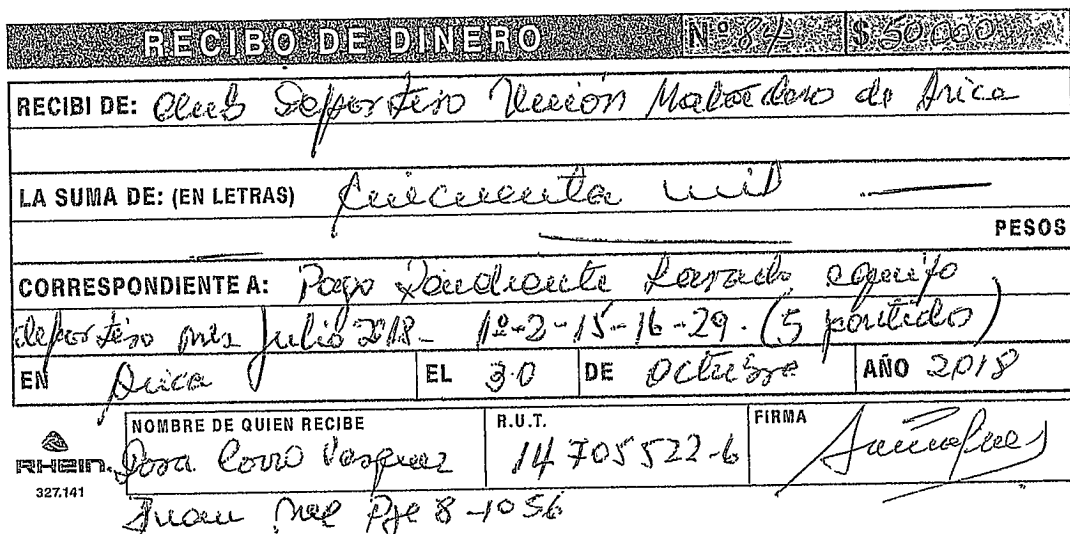 RECIBO DE DINERO Nº 84 $ 50.000
RECIBI DE: Club Deportivo Unión Matadero de Arica
LA SUMA DE: (EN LETRAS) Cincuenta mil
PESOS
CORRESPONDIENTE A: Pago Pendiente Lavado equipo
deportivo mes Julio 2018 - 1º-2-15-16-29. (5 partidos)
EN Arica EL 30 DE Octubre AÑO 2018
NOMBRE DE QUIEN RECIBE R.U.T. FIRMA
RHEIN. Rosa Corro Vasquez 14 705 522-6
327.141
Juan Pje 8-1056